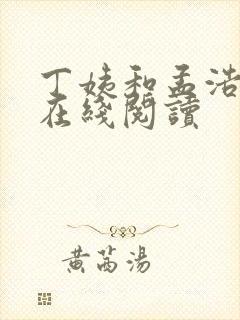 丁姨和孟浩
在綫閱讀
黄芮湯